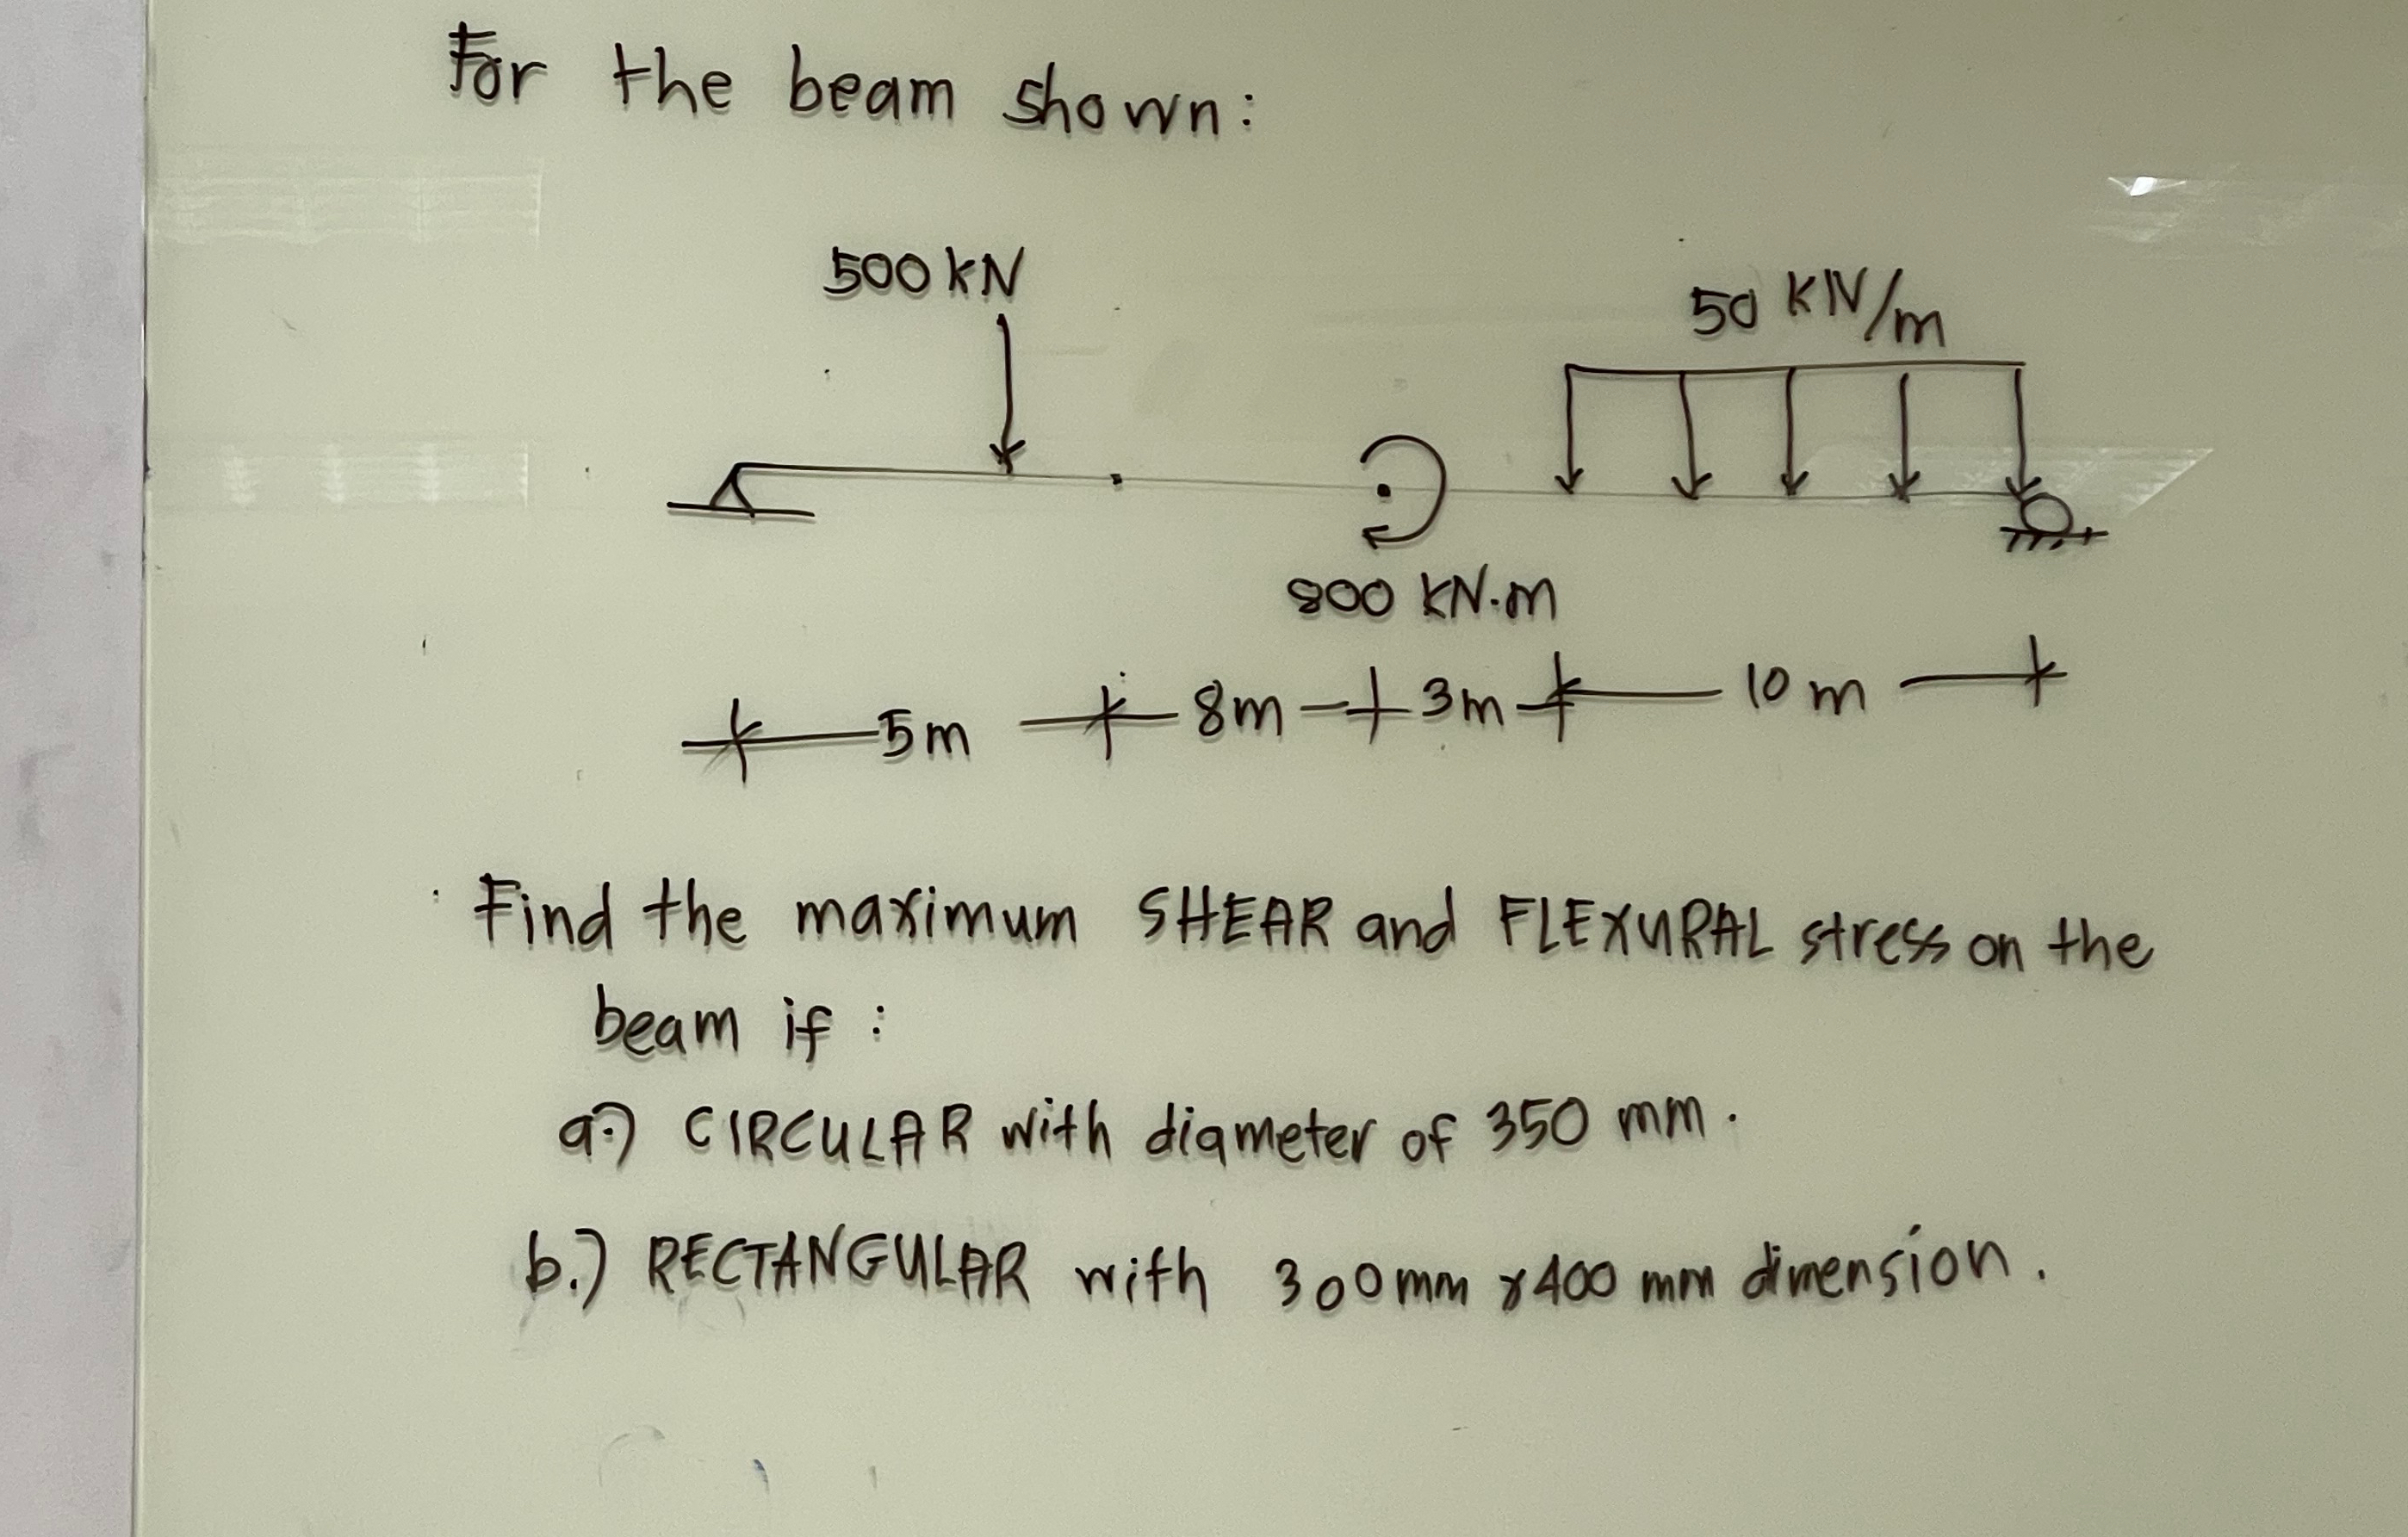 For the beam shown:
500 kN
50 KN/m
800 KN.m
5m 8m 3m 10 m
Find the maximum SHEAR and FLEXURAL stress on the
beam if :
a.) CIRCULAR with diameter of 350 mm.
b.) RECTANGULAR with 300mm x 400 mm dimension.